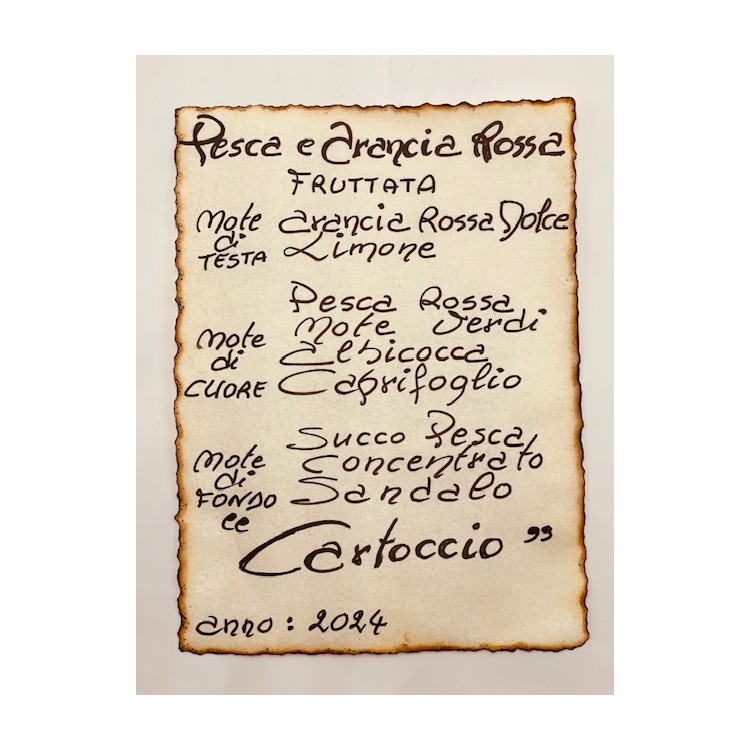 Pesca e Arancia Rossa
FRUTTATA
Note di TESTA
Arancia Rossa Dolce
Limone
Note di CUORE
Pesca Rossa
Note Verdi
Albicocca
Caprifoglio
Note di FONDO
Succo Pesca
Concentrato
Sandalo
“Cartoccio”
anno: 2024